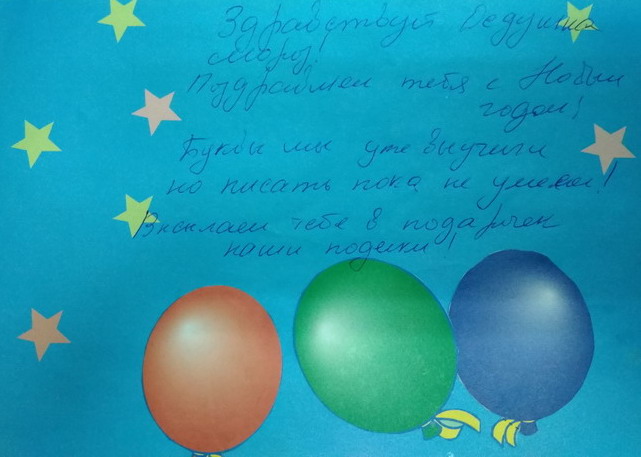 Здравствуй Дедушка
мороз!
Поздравляем тебя с Новым
годом!
Буквы мы уже выучили
но писать пока не умеем!
Высылаем тебе в подарочек
наши поделки!